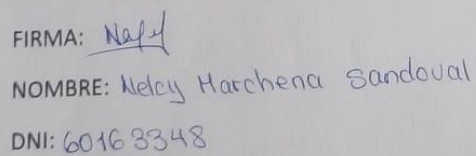 FIRMA:
NOMBRE: Nelcy Marchena Sandoval
DNI: 60163348